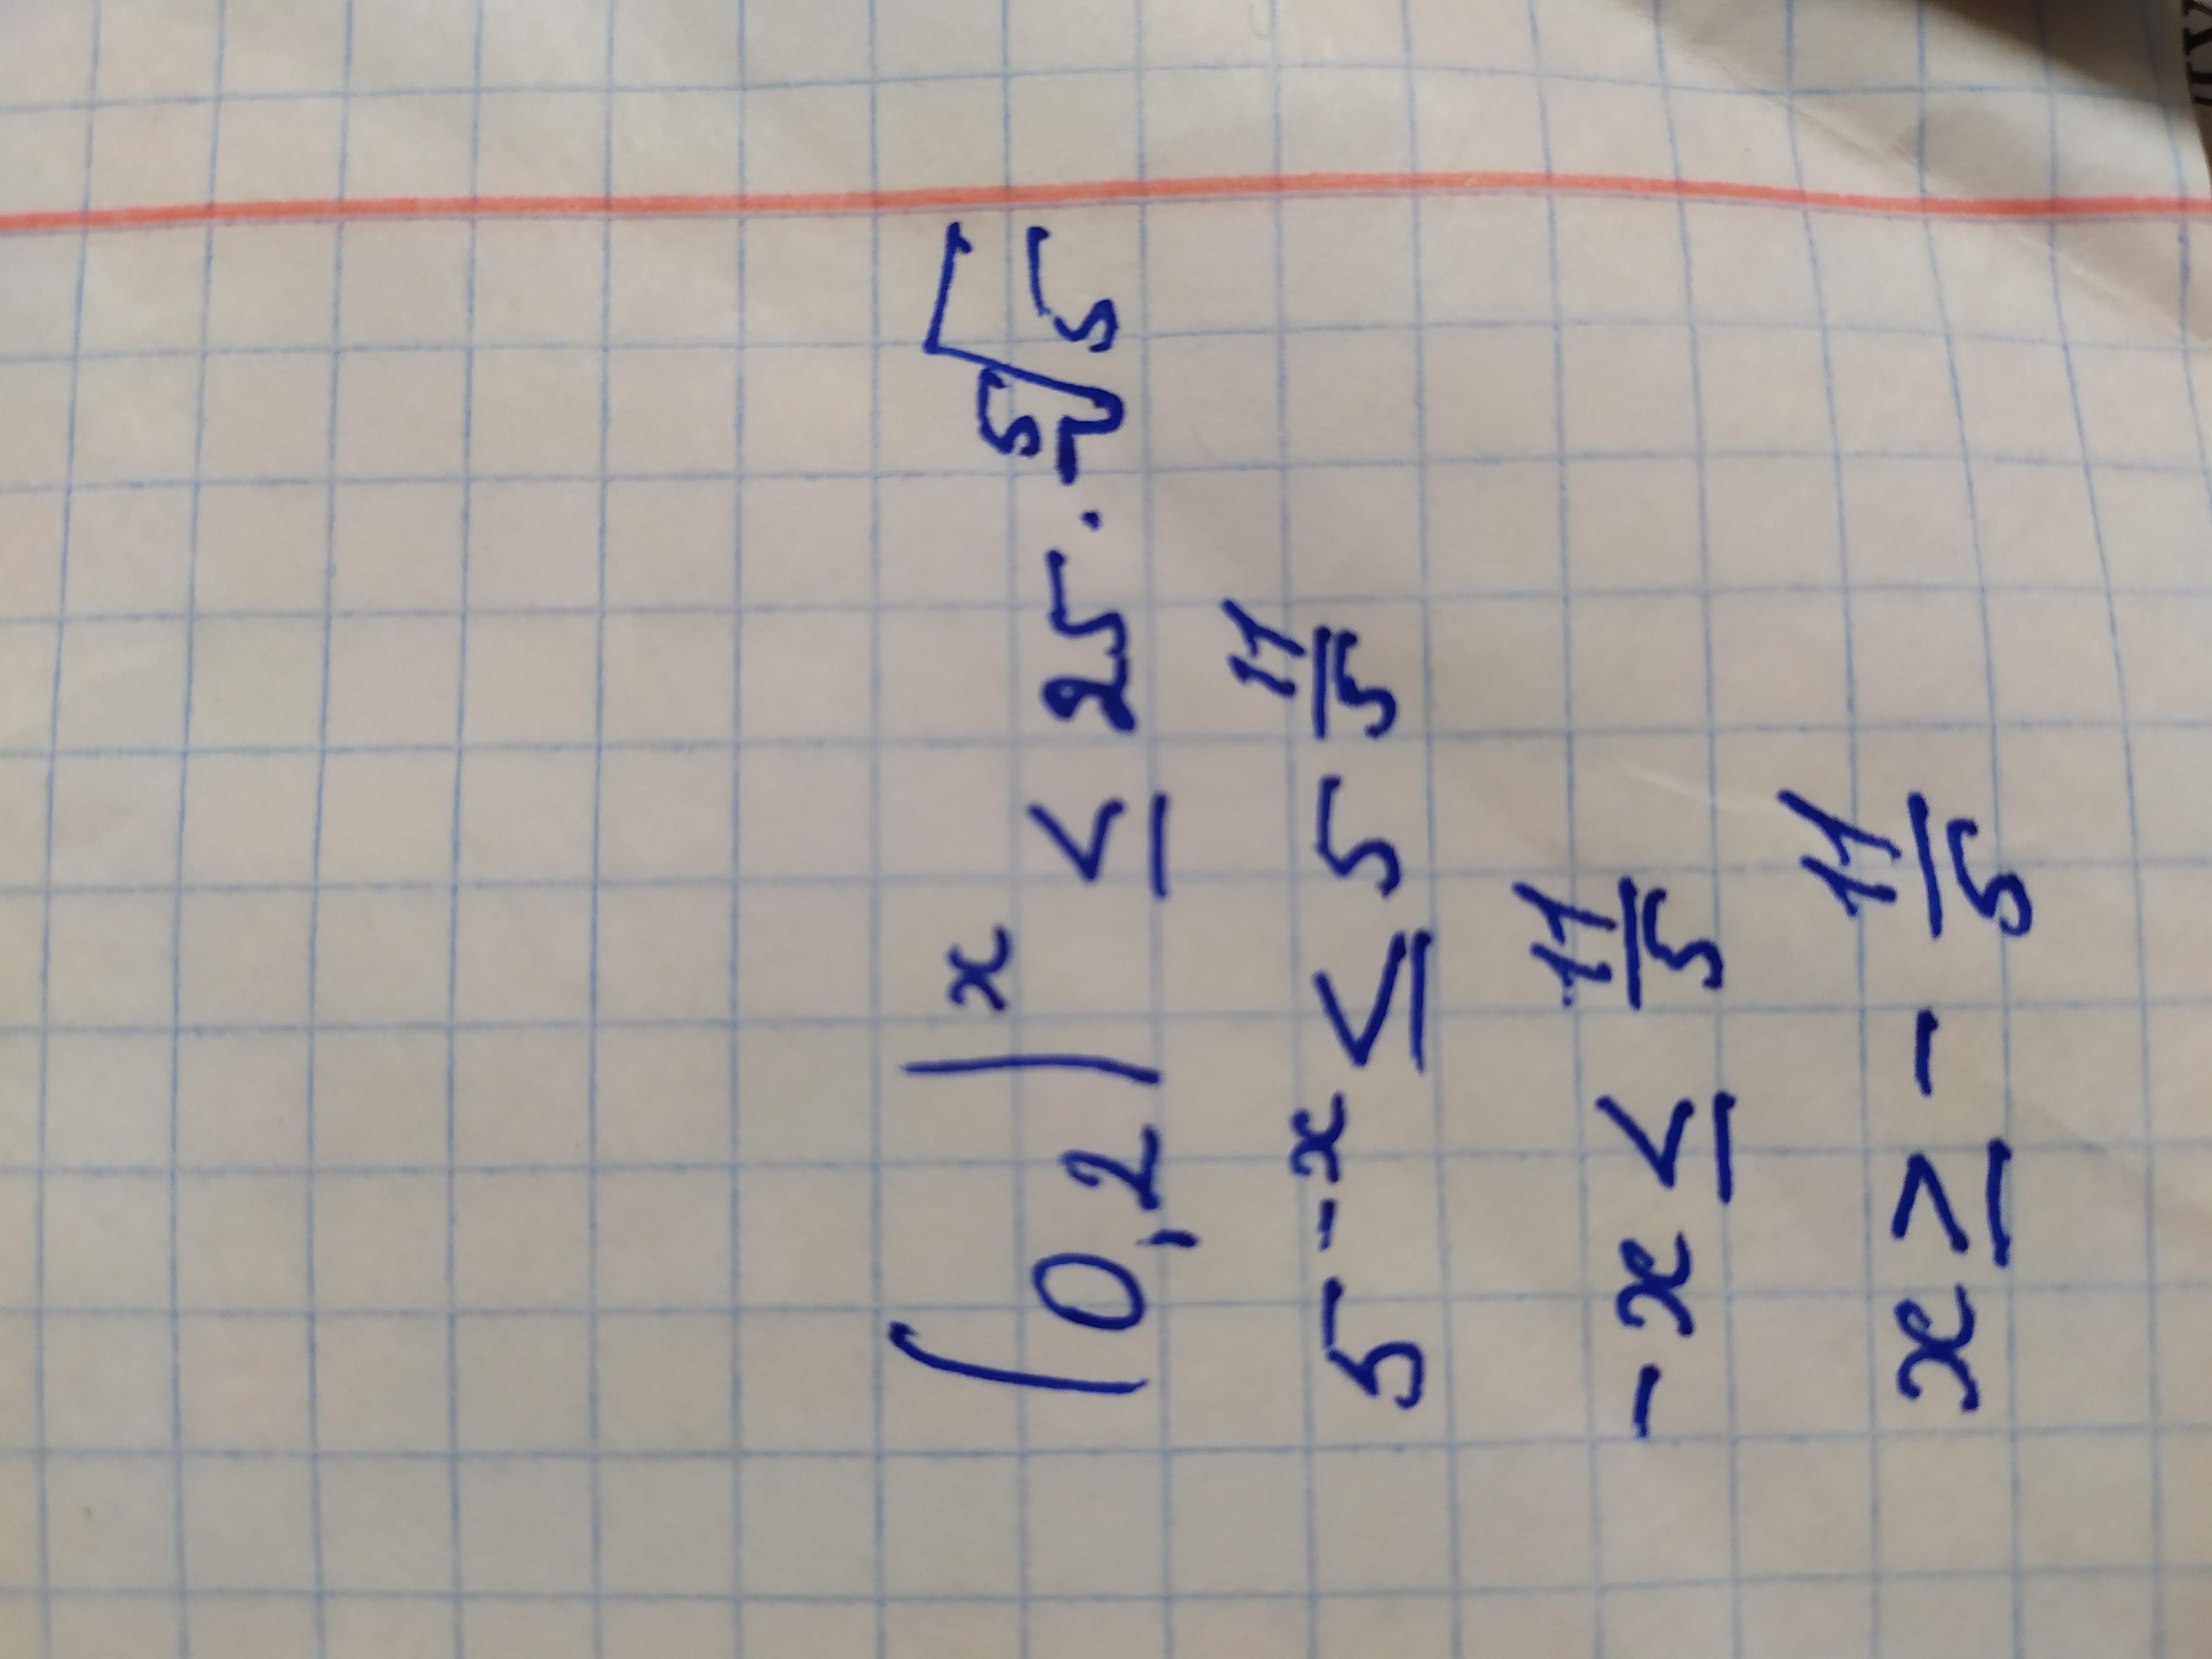 (0,2)^x ≤ 25 · ⁵√5
5^(-x) ≤ 5^(11/5)
-x ≤ 11/5
x ≥ - 11/5